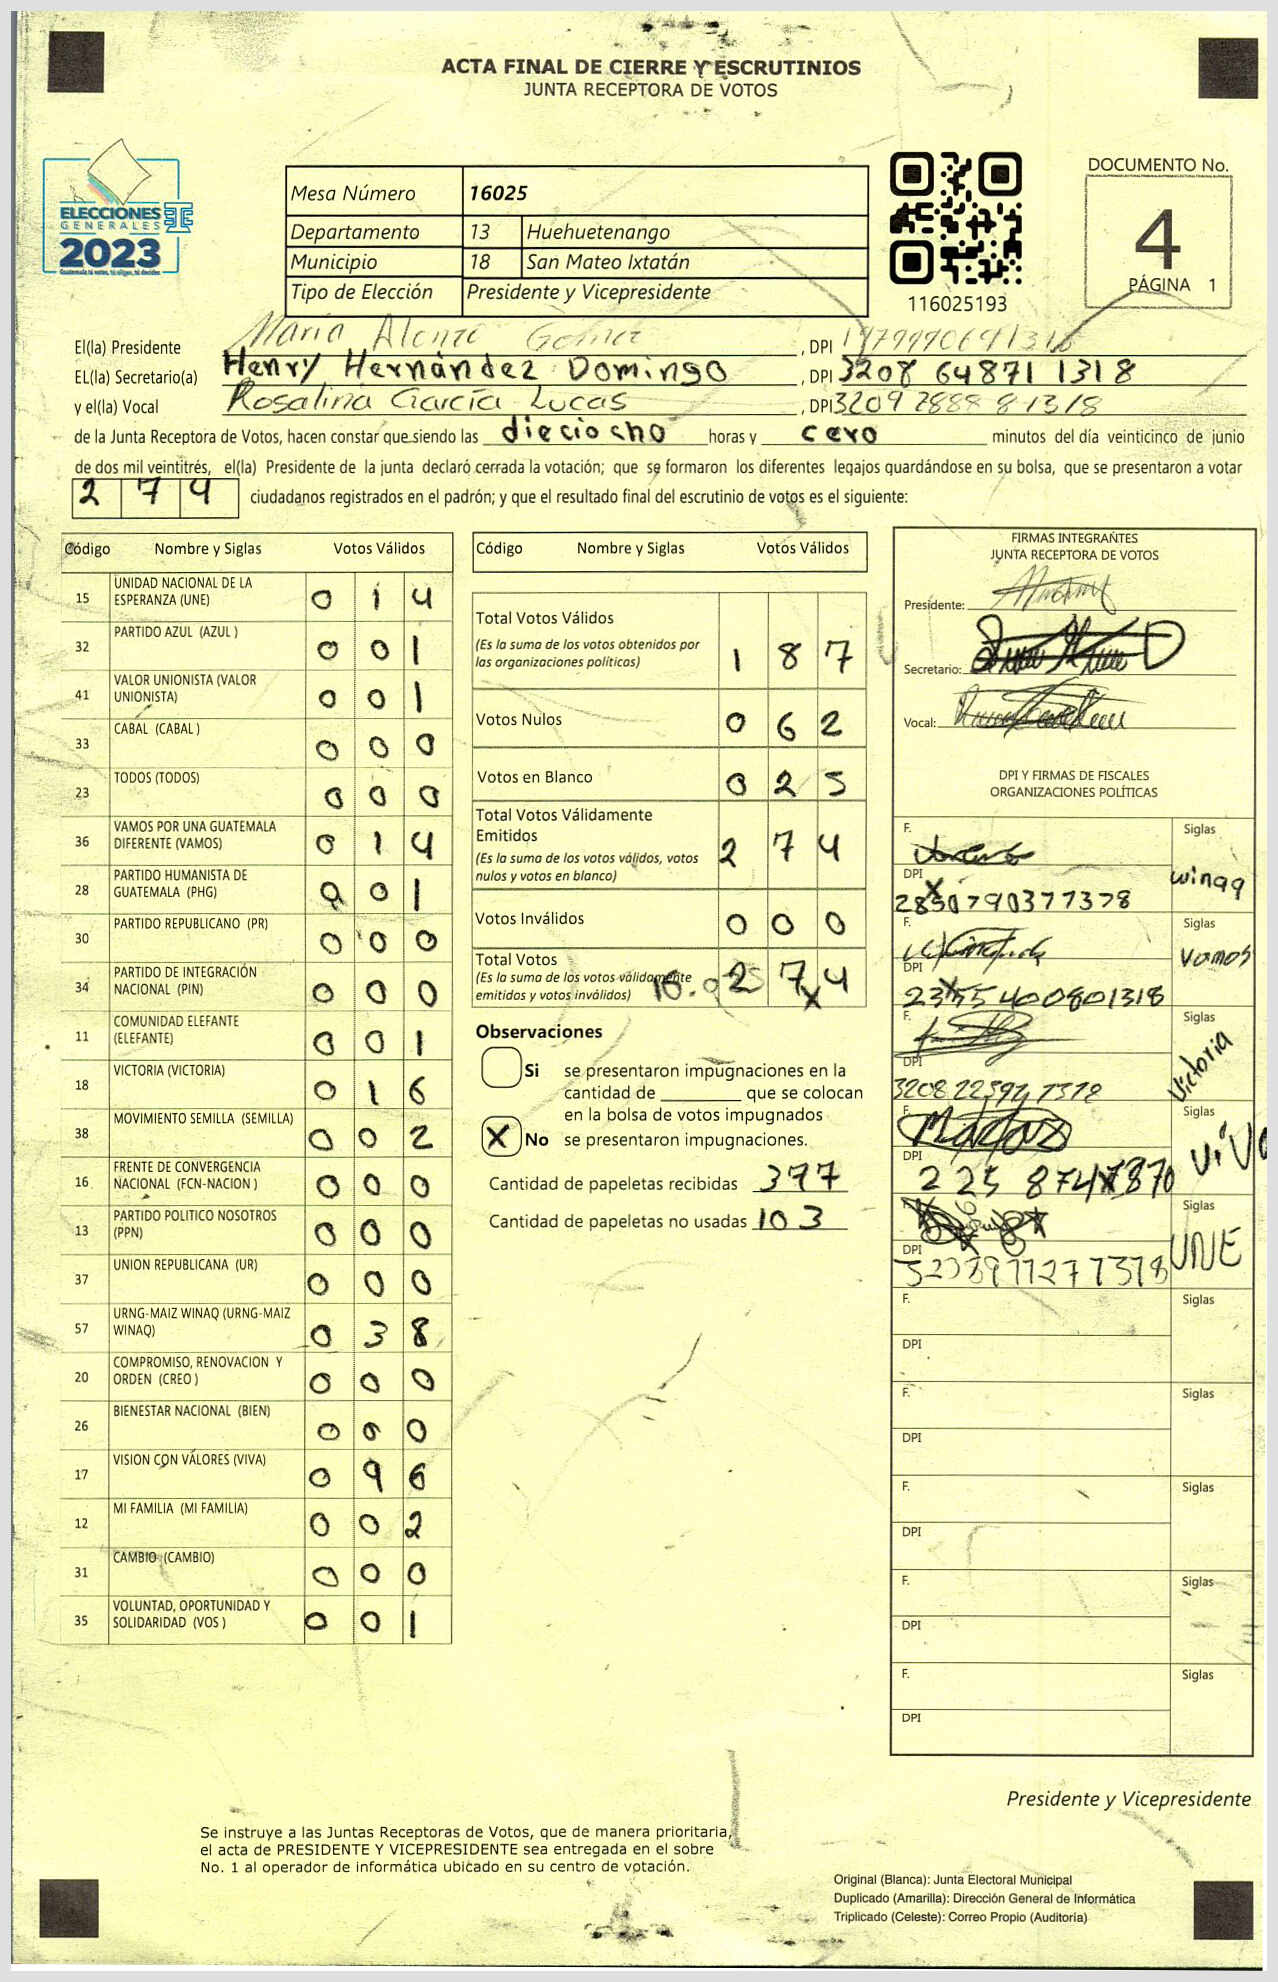 ACTA FINAL DE CIERRE Y ESCRUTINIOS
JUNTA RECEPTORA DE VOTOS
ELECCIONES
GENERALES
2023
Guatemala tú votas, tú eliges, tú decides
Mesa Número 16025
Departamento 13 Huehuetenango
Municipio 18 San Mateo Ixtatán
Tipo de Elección Presidente y Vicepresidente
116025193
DOCUMENTO No.
4
PÁGINA 1
El(la) Presidente María Alonzo Gomez , DPI
EL(la) Secretario(a) Henry Hernández Domingo , DPI 3208 64871 1318
y el(la) Vocal Rosalina García Lucas , DPI 3209 28888 1318
de la Junta Receptora de Votos, hacen constar que siendo las dieciocho horas y cero minutos del día veinticinco de junio
de dos mil veintitrés, el(la) Presidente de la junta declaró cerrada la votación; que se formaron los diferentes legajos quardándose en su bolsa, que se presentaron a votar
2 7 4 ciudadanos registrados en el padrón; y que el resultado final del escrutinio de votos es el siguiente:
Código Nombre y Siglas Votos Válidos
15 UNIDAD NACIONAL DE LA ESPERANZA (UNE) 0 1 4
32 PARTIDO AZUL (AZUL ) 0 0 1
41 VALOR UNIONISTA (VALOR UNIONISTA) 0 0 1
33 CABAL (CABAL ) 0 0 0
23 TODOS (TODOS) 0 0 0
36 VAMOS POR UNA GUATEMALA DIFERENTE (VAMOS) 0 1 4
28 PARTIDO HUMANISTA DE GUATEMALA (PHG) 0 0 1
30 PARTIDO REPUBLICANO (PR) 0 0 0
34 PARTIDO DE INTEGRACIÓN NACIONAL (PIN) 0 0 0
11 COMUNIDAD ELEFANTE (ELEFANTE) 0 0 1
18 VICTORIA (VICTORIA) 0 1 6
38 MOVIMIENTO SEMILLA (SEMILLA) 0 0 2
16 FRENTE DE CONVERGENCIA NACIONAL (FCN-NACION ) 0 0 0
13 PARTIDO POLITICO NOSOTROS (PPN) 0 0 0
37 UNION REPUBLICANA (UR) 0 0 0
57 URNG-MAIZ WINAQ (URNG-MAIZ WINAQ) 0 3 8
20 COMPROMISO, RENOVACION Y ORDEN (CREO ) 0 0 0
26 BIENESTAR NACIONAL (BIEN) 0 0 0
17 VISION CON VALORES (VIVA) 0 9 6
12 MI FAMILIA (MI FAMILIA) 0 0 2
31 CAMBIO (CAMBIO) 0 0 0
35 VOLUNTAD, OPORTUNIDAD Y SOLIDARIDAD (VOS ) 0 0 1
Código Nombre y Siglas Votos Válidos
Total Votos Válidos
(Es la suma de los votos obtenidos por
las organizaciones políticas) 1 8 7
Votos Nulos 0 6 2
Votos en Blanco 0 2 5
Total Votos Válidamente
Emitidos
(Es la suma de los votos válidos, votos
nulos y votos en blanco) 2 7 4
Votos Inválidos 0 0 0
Total Votos
(Es la suma de los votos válidamente
emitidos y votos inválidos) 2 7 4
Observaciones
Si se presentaron impugnaciones en la
cantidad de ________ que se colocan
en la bolsa de votos impugnados
X No se presentaron impugnaciones.
Cantidad de papeletas recibidas 377
Cantidad de papeletas no usadas 103
FIRMAS INTEGRANTES
JUNTA RECEPTORA DE VOTOS
Presidente:
Secretario:
Vocal:
DPI Y FIRMAS DE FISCALES
ORGANIZACIONES POLÍTICAS
F. Siglas
DPI winaq
F. Siglas
DPI Vamos
F. Siglas
DPI Victoria
F. Siglas
DPI ViVa
Siglas
DPI UNE
F. Siglas
DPI
F. Siglas
DPI
F. Siglas
DPI
F. Siglas
DPI
F. Siglas
DPI
Presidente y Vicepresidente
Se instruye a las Juntas Receptoras de Votos, que de manera prioritaria,
el acta de PRESIDENTE Y VICEPRESIDENTE sea entregada en el sobre
No. 1 al operador de informática ubicado en su centro de votación.
Original (Blanca): Junta Electoral Municipal
Duplicado (Amarilla): Dirección General de Informática
Triplicado (Celeste): Correo Propio (Auditoría)